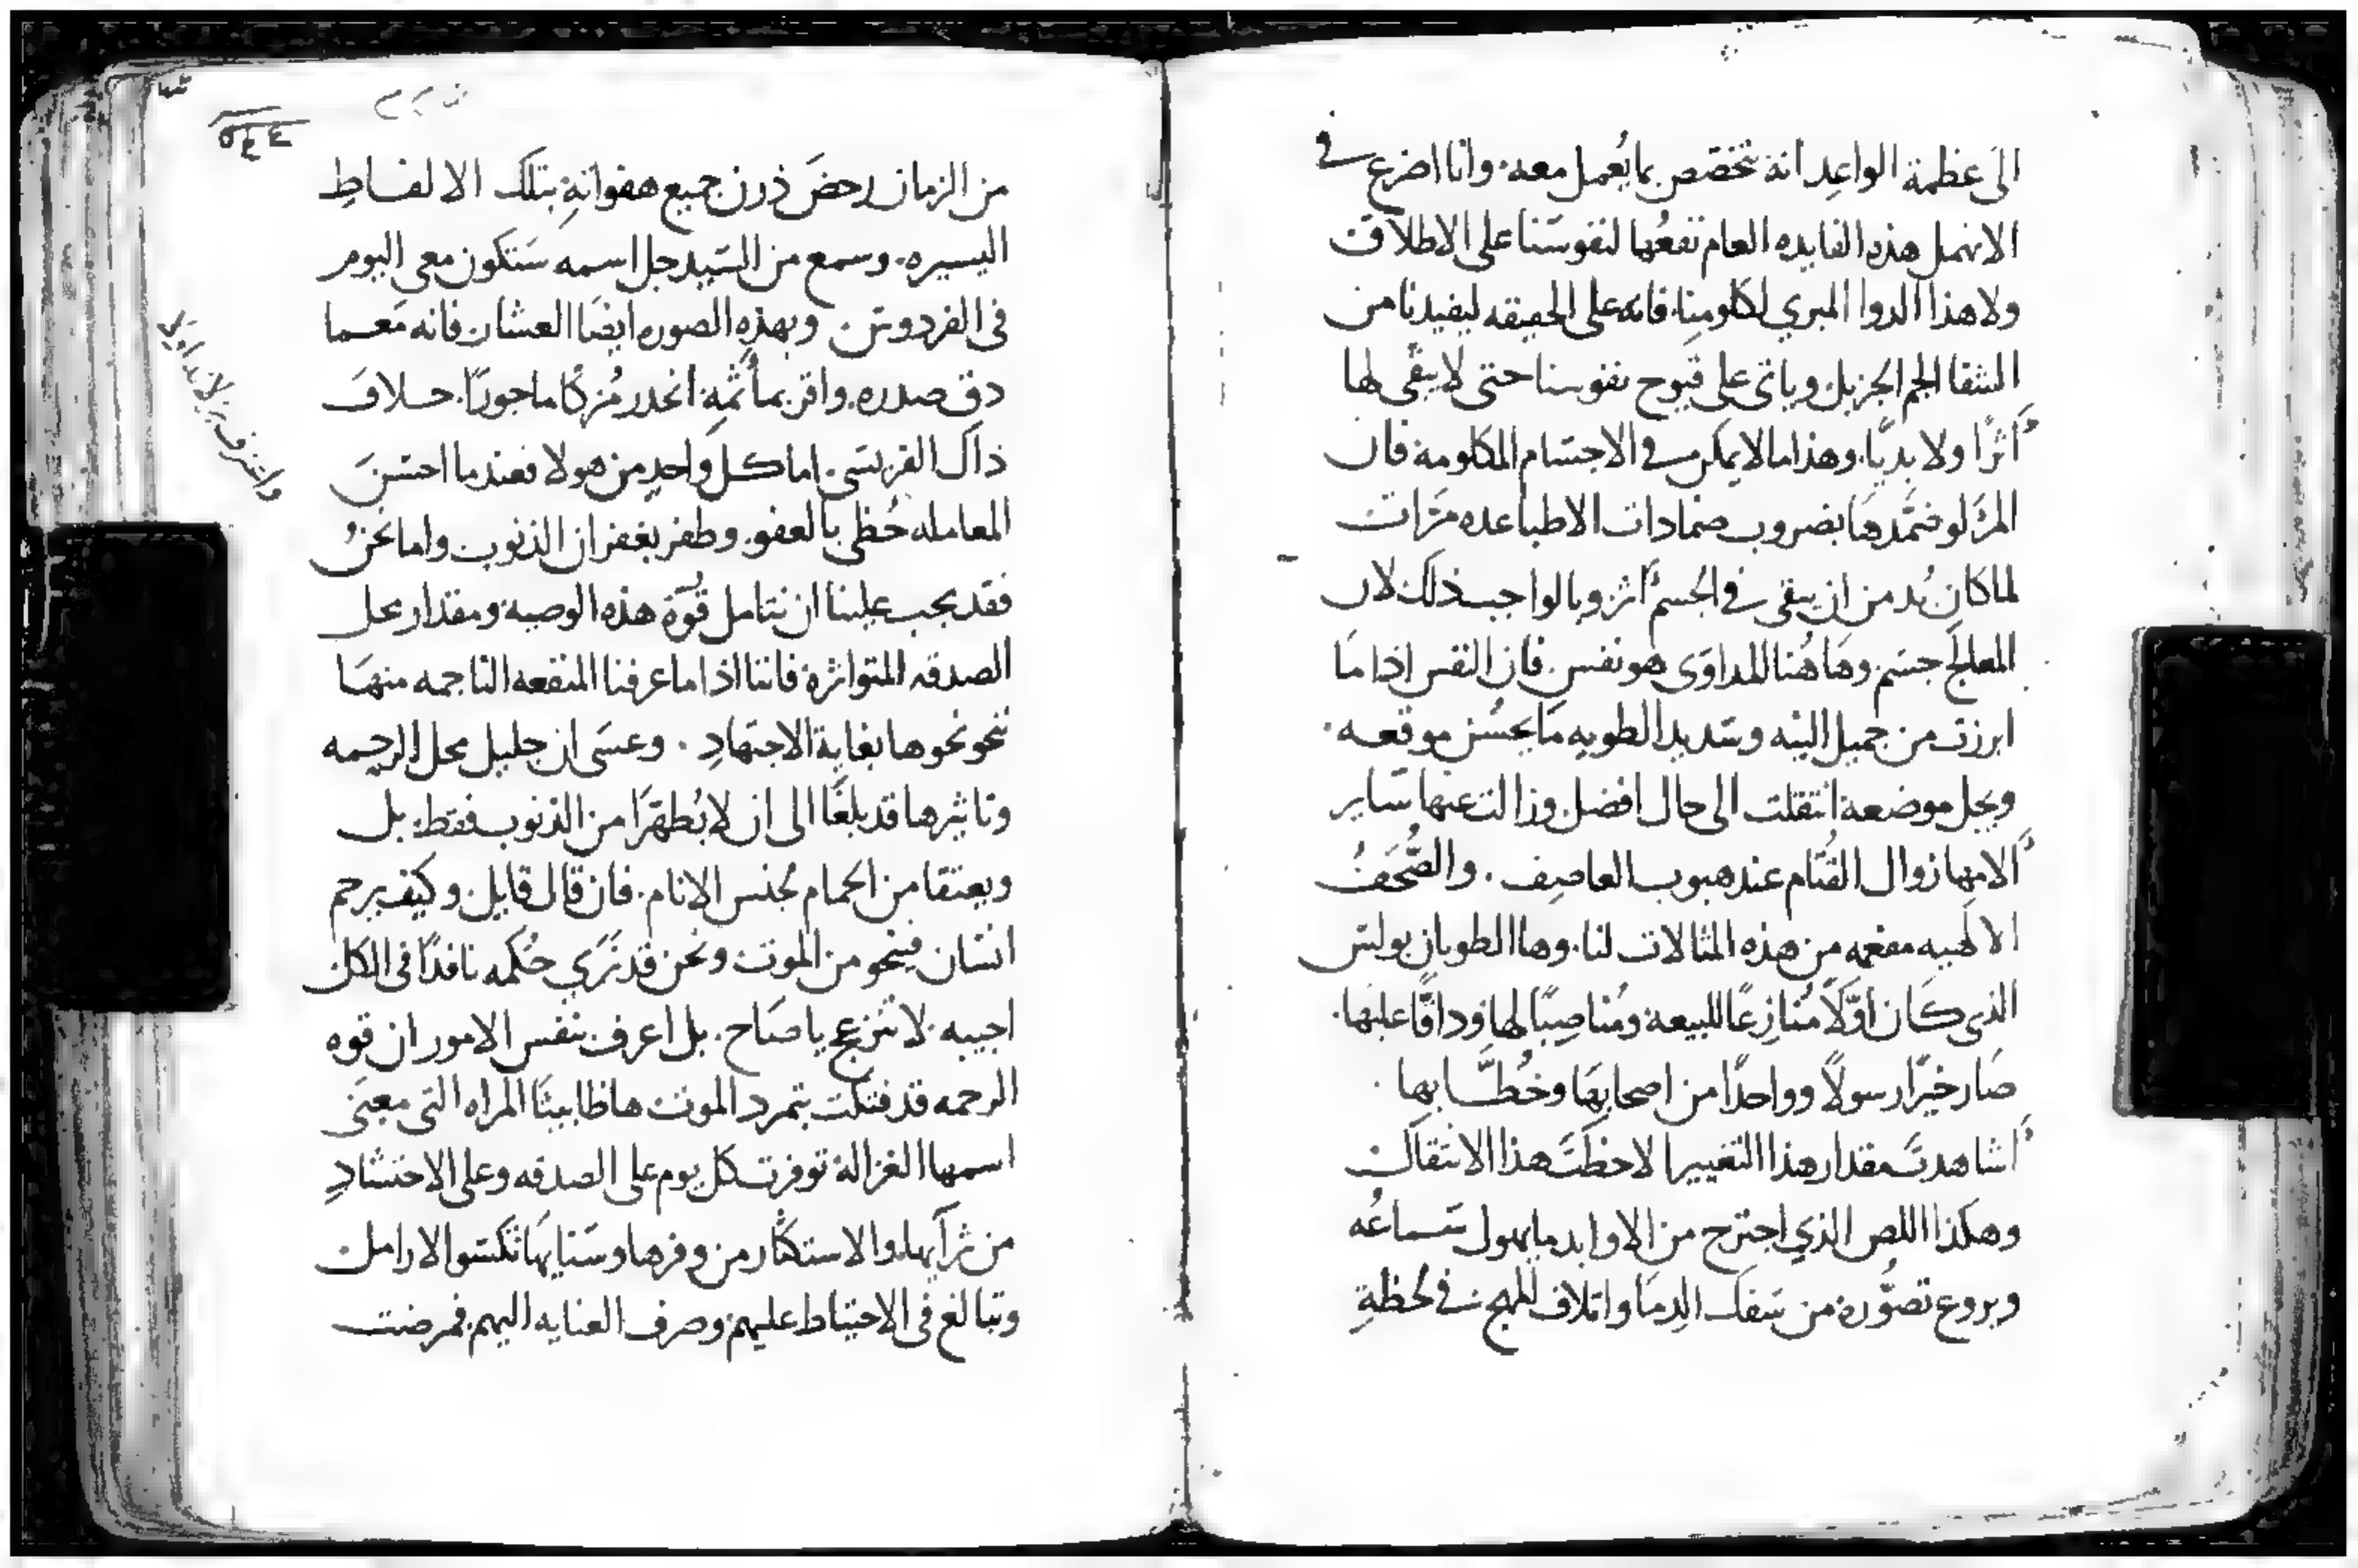 الى عظمة الواعد انه تخصص بما يُعمل معه. وانا اضرع في
الا نهمل هذه الفايده العام نفعُها لنفوسنا على الاطلاق
ولا هذا الدوا المبري لكلومنا. فانه على الحقيقه ليفيدنا من
الشفا الجم الجزيل وياتى على قيوح نفوسنا حتى لا يبقى لها
أثرًا ولا بديًا. وهذا ما لا يمكن في الاجسام المكلومة فان
المرَ لو ضمَّدها بضروب ضمادات الاطبا عده مرَات
لما كان بُد من ان يبقى في الجُسم أثر وبالواجب ذلك لان
المعالَج جسَم. وهَا هُنا المداوَى هو نفس. فان النفس اذا مَا
ابرزت من جميل النيه وسَديد الطويه مَا يحسُن موقعه.
ويجل موضعه انتقلت الى حال افضل وزالت عنها سَاير
ألامها زوال القُتام عند هبوب العاصِف. والصُّحَفُ
الالَهيه مفعمه من هذه المثالات لنا. وها الطوبان بولس
الذى كَان أوّلًا مُنازِعًا للبيعة ومُناصِبًا لها ودافًا عليها.
صَار خيّرًا رسولًا وواحدًا من اصحابهَا وخُطّــابها.
أشاهدتَ مقدار هذا التغيير الاحظتَ هذا الانتقال
وهكذا اللص الذي اجترح من الاوابد ما يهول سَماعُه
ويروع تصَوُّره من سَفك الدِمَا واتلاف المهج في لحظةٍ
٥٤٤
من الزمان رحضَ ذرن جميع هفواتهِ بتلك الالفاظِ
اليسيره. وسمع من السَيد جل اسمه سَتكون معى اليوم
فى الفردوس وبهذهِ الصوره ايضَا العشار فانه مَعما
دق صدره واقر بمأثمهِ انحدر مُزكًا ماجورًا. خلافَ
ذاك الفريسَى. اما كل واحدٍ من هولا فعندما احسَنَ
المعامله حُظى بالعفو. وظفر بغفران الذنوب واما نحنُ
فقد يجب علينا ان نتامل قُوّة هذه الوصيه ومقدار محل
الصدقه المتواثره فاننا اذا ما عرفنا المنفعه الناجمه منهَا
ننحو نحوها بغاية الاجتهادِ. وعسَى ان جليل محل الرحمه
وتاثيرها قد بلغَا الى ان لا يُطهرَا من الذنوب فقط: بل
ويعتقا من الحمام لجنس الانام. فان قال قايل. وكيف يرحم
انسَان فينجو من الموت ونحن قد نَرَى حُكمه نافدًا فى الكل
اجيبه. لا تنزعج يا صَاح. بل اعرف بنفس الامور ان قوه
الرحمه قد فتكت بتمرد الموت هاظابيثَا المراه التى معنَى
اسمها الغزالة توفرت كل يوم على الصدقه وعلى الاحتشادِ
من ثرآيها. والاستكثار من وفرها وسَنايهَا تكسَوا الارامل
وتبالغ فى الاحتياط عليهم وصرف العنايه اليهم فمرضت
واعترف